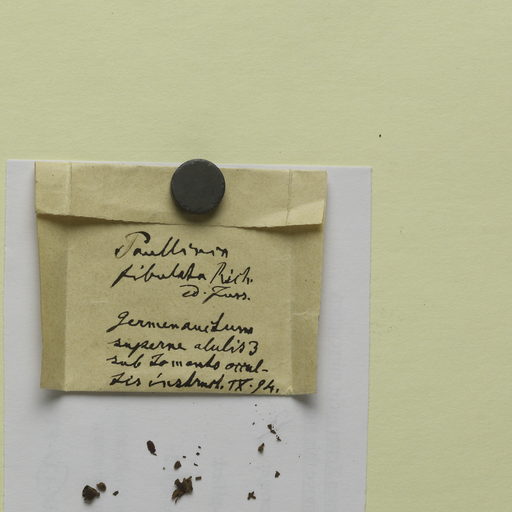 Paullinia
fibulata Rich.
ed. Juss.
Germen auctum
superne alulis 3
sub tomento occul-
tis instruct. IX. 94.